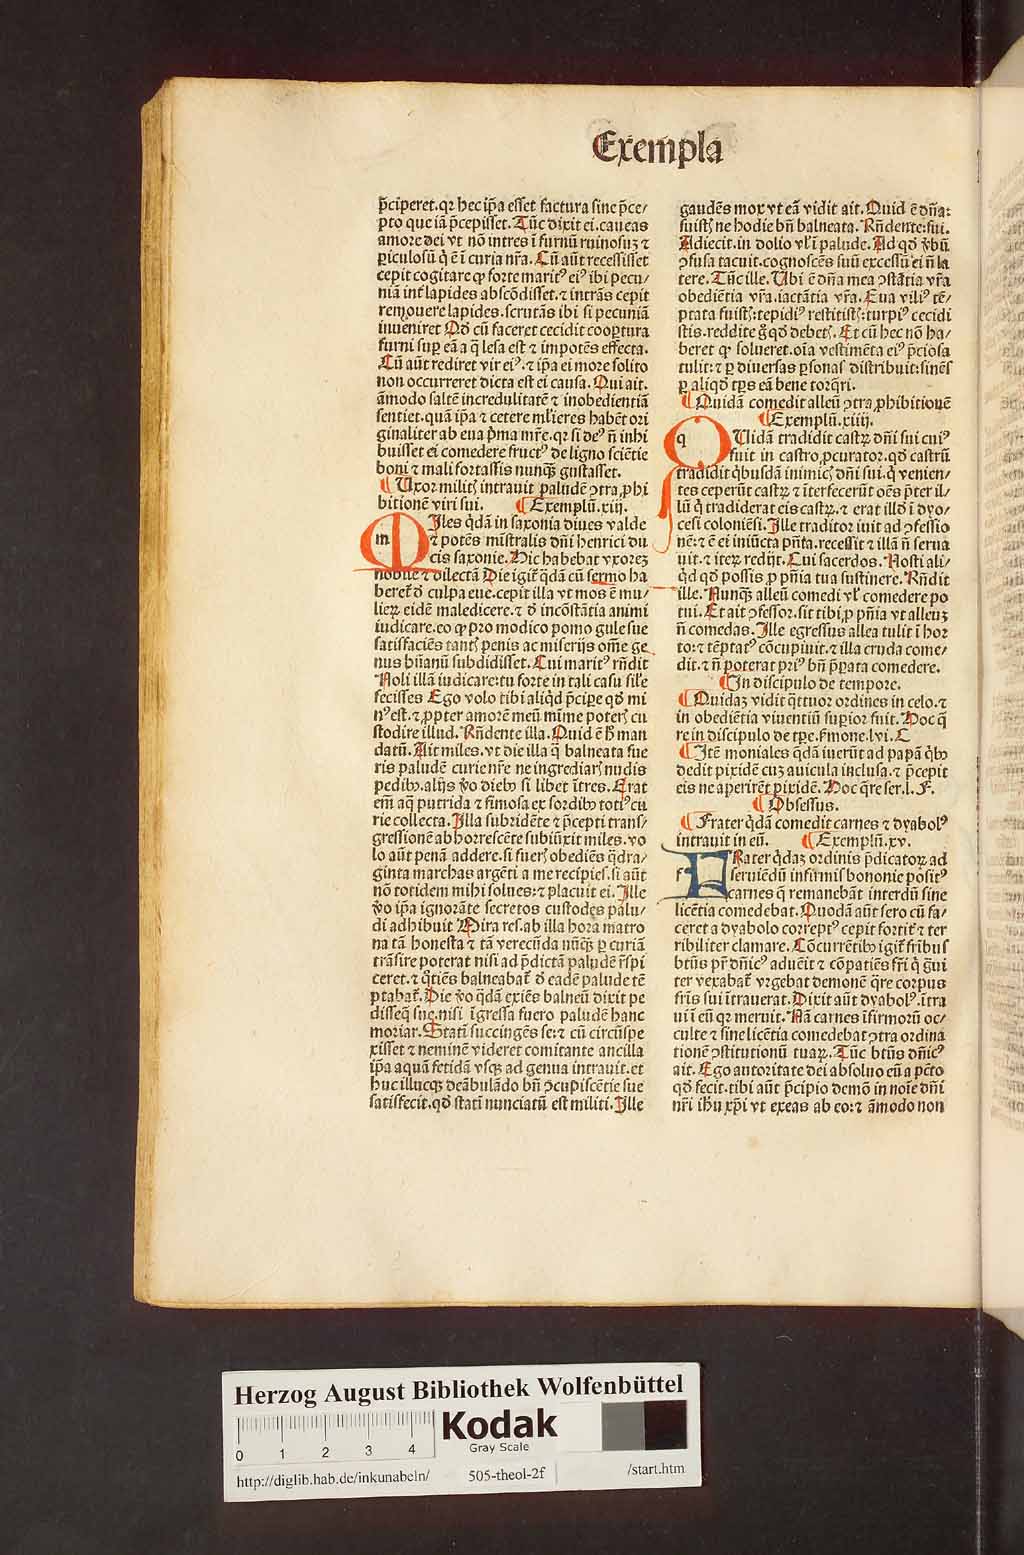 Exempla
p̄ciperet.qꝛ hec ip̄a eſſet factura ſine p̄ce⸗
pto que iā p̄cepiſſet.Tūc dixit ei.caueas
amore dei vt nō intres ī furnū ruinoſuꝫ ⁊
ꝑiculoſū q̄ ē ī curia nr̄a.Cū aūt receſſiſſet
cepit cogitare ꝙ forte maritꝰ eiꝰ ibi pecu⸗
niā int̄ lapides abſcōdiſſet.⁊ intrās cepit
remouere lapides.ſcrutās ibi ſi pecuniā
inueniret Qd̄ cū faceret cecidit cooꝑtura
furni ſuꝑ eā a q̄ leſa eſt ⁊ impotēs effecta.
Cū aūt rediret vir eiꝰ.⁊ ip̄a ei more ſolito
non occurreret dicta eſt ei cauſa.Qui ait.
āmodo ſaltē incredulitatē ⁊ inobedientiā
ſentiet.quā ip̄a ⁊ cetere ml̓ieres habēt ori
ginaliter ab eua p̄ma mr̄e.qꝛ ſi deꝰ n̄ inhi
buiſſet ei comedere fructꝰ de ligno ſciētie
boni ⁊ mali fortaſſis nunqꝫ guſtaſſet.
¶ Uxor militꝭ intrauit paludē ꝯtra ꝓhi
bitionē viri ſui. ¶ Exemplū.xiij.
m
Iles q̄dā in ſaxonia diues valde
⁊ potēs miſtralis dn̄i henrici du
cis ſaxonie.Hic habebat vxoreꝫ
nobilē ⁊ dilectā Die igit̄ q̄dā cū ſermo ha
beret̄ d̄ culpa eue.cepit illa vt mos ē mu⸗
lieꝝ eidē maledicere.⁊ d̄ incōſtātia animi
iudicare.eo ꝙ pro modico pomo gule ſue
ſatiſfaciēs tantꝭ penis ac miſerijs om̄e ge
nus hūanū ſubdidiſſet.Cui maritꝰ rn̄dit
Noli illā iudicare:tu forte in tali caſu ſil̓e
feciſſes Ego volo tibi aliqd̄ p̄cipe qd̄ mi
nꝰ eſt.⁊ ꝓpter amorē meū mīme poterꝭ cu
ſtodire illud.Rn̄dente illa.Quid ē h̄ man
datū.Ait miles.vt die illa q̄ balneata fue
ris paludē curie nr̄e ne ingrediarꝭ nudis
pedibꝰ.alijs v̄o diebꝰ ſi libet ītres.Erat
em̄ aq̄ putrida ⁊ fimoſa ex ſordibꝰ totiꝰ cu
rie collecta.Illa ſubridēte ⁊ p̄cepti tranſ⸗
greſſionē abhorreſcēte ſubiūxit miles.vo
lo aūt penā addere.ſi fuerꝭ obediēs q̄dra⸗
ginta marchas argēti a me recipies.ſi aūt
nō totidem mihi ſolues:⁊ placuit ei.Ille
v̄o ip̄a ignorāte ſecretos cuſtodes palu⸗
di adhibuit Mira res.ab illa hora matro
na tā honeſta ⁊ tā verecūda nūqꝫ ꝑ curiā
trāſire poterat niſi ad p̄dictā paludē r̄ſpi
ceret.⁊ q̄tiēs balneabat̄ d̄ eadē palude tē
ptabat̄.Die v̄o q̄dā exiēs balneū dixit pe
diſſeq̄ ſue.niſi īgreſſa fuero paludē hanc
moriar.Statī ſuccingēs ſe:⁊ cū circūſpe
xiſſet ⁊ neminē videret comitante ancilla
ip̄a aquā fetidā vſqꝫ ad genua intrauit.et
huc illucqꝫ deābulādo bn̄ ꝯcupiſcētie ſue
ſatiſfecit.qd̄ ſtatī nunciatū eſt militi.Ille
gaudēs mox vt eā vidit ait.Quid ē dn̄a:
fuiſtꝭ ne hodie bn̄ balneata.Rn̄dente:ſui.
Adiecit.in dolio vl̓ ī palude.Ad qd̄ v̄bū
ꝯfuſa tacuit.cognoſcēs ſuū exceſſū ei n̄ la
tere.Tūc ille.Ubi ē dn̄a mea ꝯſtātia vr̄a
obediētia vr̄a.iactātia vr̄a.Eua viliꝰ tē⸗
ptata fuiſtꝭ:tepidiꝰ reſtitiſtꝭ:turpiꝰ cecidi
ſtis.reddite g̊ qd̄ debetꝭ.Et cū hec nō ha⸗
beret ꝙ ſolueret.oīa veſtimēta eiꝰ p̄cioſa
tulit:⁊ ꝑ diuerſas ꝑſonas diſtribuit:ſinēs
ꝑ aliqd̄ tp̄s eā bene torq̄ri.
¶ Quidā comedit alleū ꝯtra ꝓhibitionē
¶ Exemplū.xiiij.
q
Uidā tradidit caſtꝝ dn̄i ſui cuiꝰ
fuit in caſtro ꝓcurator.qd̄ caſtrū
tradidit q̄buſdā inimicꝭ dn̄i ſui.q̄ venien⸗
tes ceperūt caſtꝝ ⁊ īterfecerūt oēs p̄ter il⸗
lū q̄ tradiderat eis caſtꝝ.⁊ erat illd̄ ī dyo⸗
ceſi colonieſi.Ille traditor iuit ad ꝯfeſſio
nē:⁊ ē ei iniūcta pn̄ta.receſſit ⁊ illā n̄ ſerua
uit.⁊ iteꝝ redijt.Cui ſacerdos.Noſti ali⸗
q̄d qd̄ poſſis ꝓ pn̄ia tua ſuſtinere.Rn̄dit
ille.Nunqꝫ alleū comedi vl̓ comedere po
tui.Et ait ꝯfeſſor.ſit tibi ꝓ pn̄ia vt alleuꝫ
n̄ comedas.Ille egreſſus allea tulit ī hor
to:⁊ tēptatꝰ cōcupiuit.⁊ illa cruda come⸗
dit.⁊ n̄ poterat priꝰ bn̄ p̄pata comedere.
¶ In diſcipulo de tempore.
¶ Quidaꝫ vidit q̄ttuor ordines in celo.⁊
in obediētia viuentiū ſuꝑior fuit.Hoc q̄
re in diſcipulo de tp̄e.ſ̓mone.lvi.C
¶ Itē moniales q̄dā iuerūt ad papā q̄bꝰ
dedit pixidē cuꝫ auicula incluſa.⁊ p̄cepit
eis ne aperirēt pixidē.Hoc q̄re ſer.l.F.
¶ Obſeſſus.
¶ Frater q̄dā comedit carnes ⁊ dyabolꝰ
intrauit in eū. ¶ Exemplū.xv.
f
Rater q̄daꝫ ordinis p̄dicatoꝝ ad
ſeruiēdū infirmis bononie poſitꝰ
carnes q̄ remanebāt interdū ſine
licētia comedebat.Quodā aūt ſero cū fa⸗
ceret a dyabolo correptꝰ cepit fortit̄ ⁊ ter
ribiliter clamare.Cōcurrētibꝰ igit̄ fr̄ibus
btūs pr̄ dn̄icꝰ aduēit ⁊ cōpatiēs fr̄i q̄ g̊ui
ter vexabat̄ vrgebat demonē q̄re corpus
fr̄is ſui ītrauerat.Dixit aūt dyabolꝰ.ītra
ui ī eū qꝛ meruit.Nā carnes īfirmorū oc⸗
culte ⁊ ſine licētia comedebat ꝯtra ordina
tionē ꝯſtitutionū tuaꝝ.Tūc btūs dn̄icꝰ
ait.Ego autoritate dei abſoluo eū a pctō
qd̄ fecit.tibi aūt p̄cipio demō in noīe dn̄i
nr̄i ih̓u xp̄i vt exeas ab eo:⁊ āmodo non
Herzog August Bibliothek Wolfenbüttel
0 1 2 3 4
Kodak
Gray Scale
http://diglib.hab.de/inkunabeln/ 505-theol-2f /start.htm